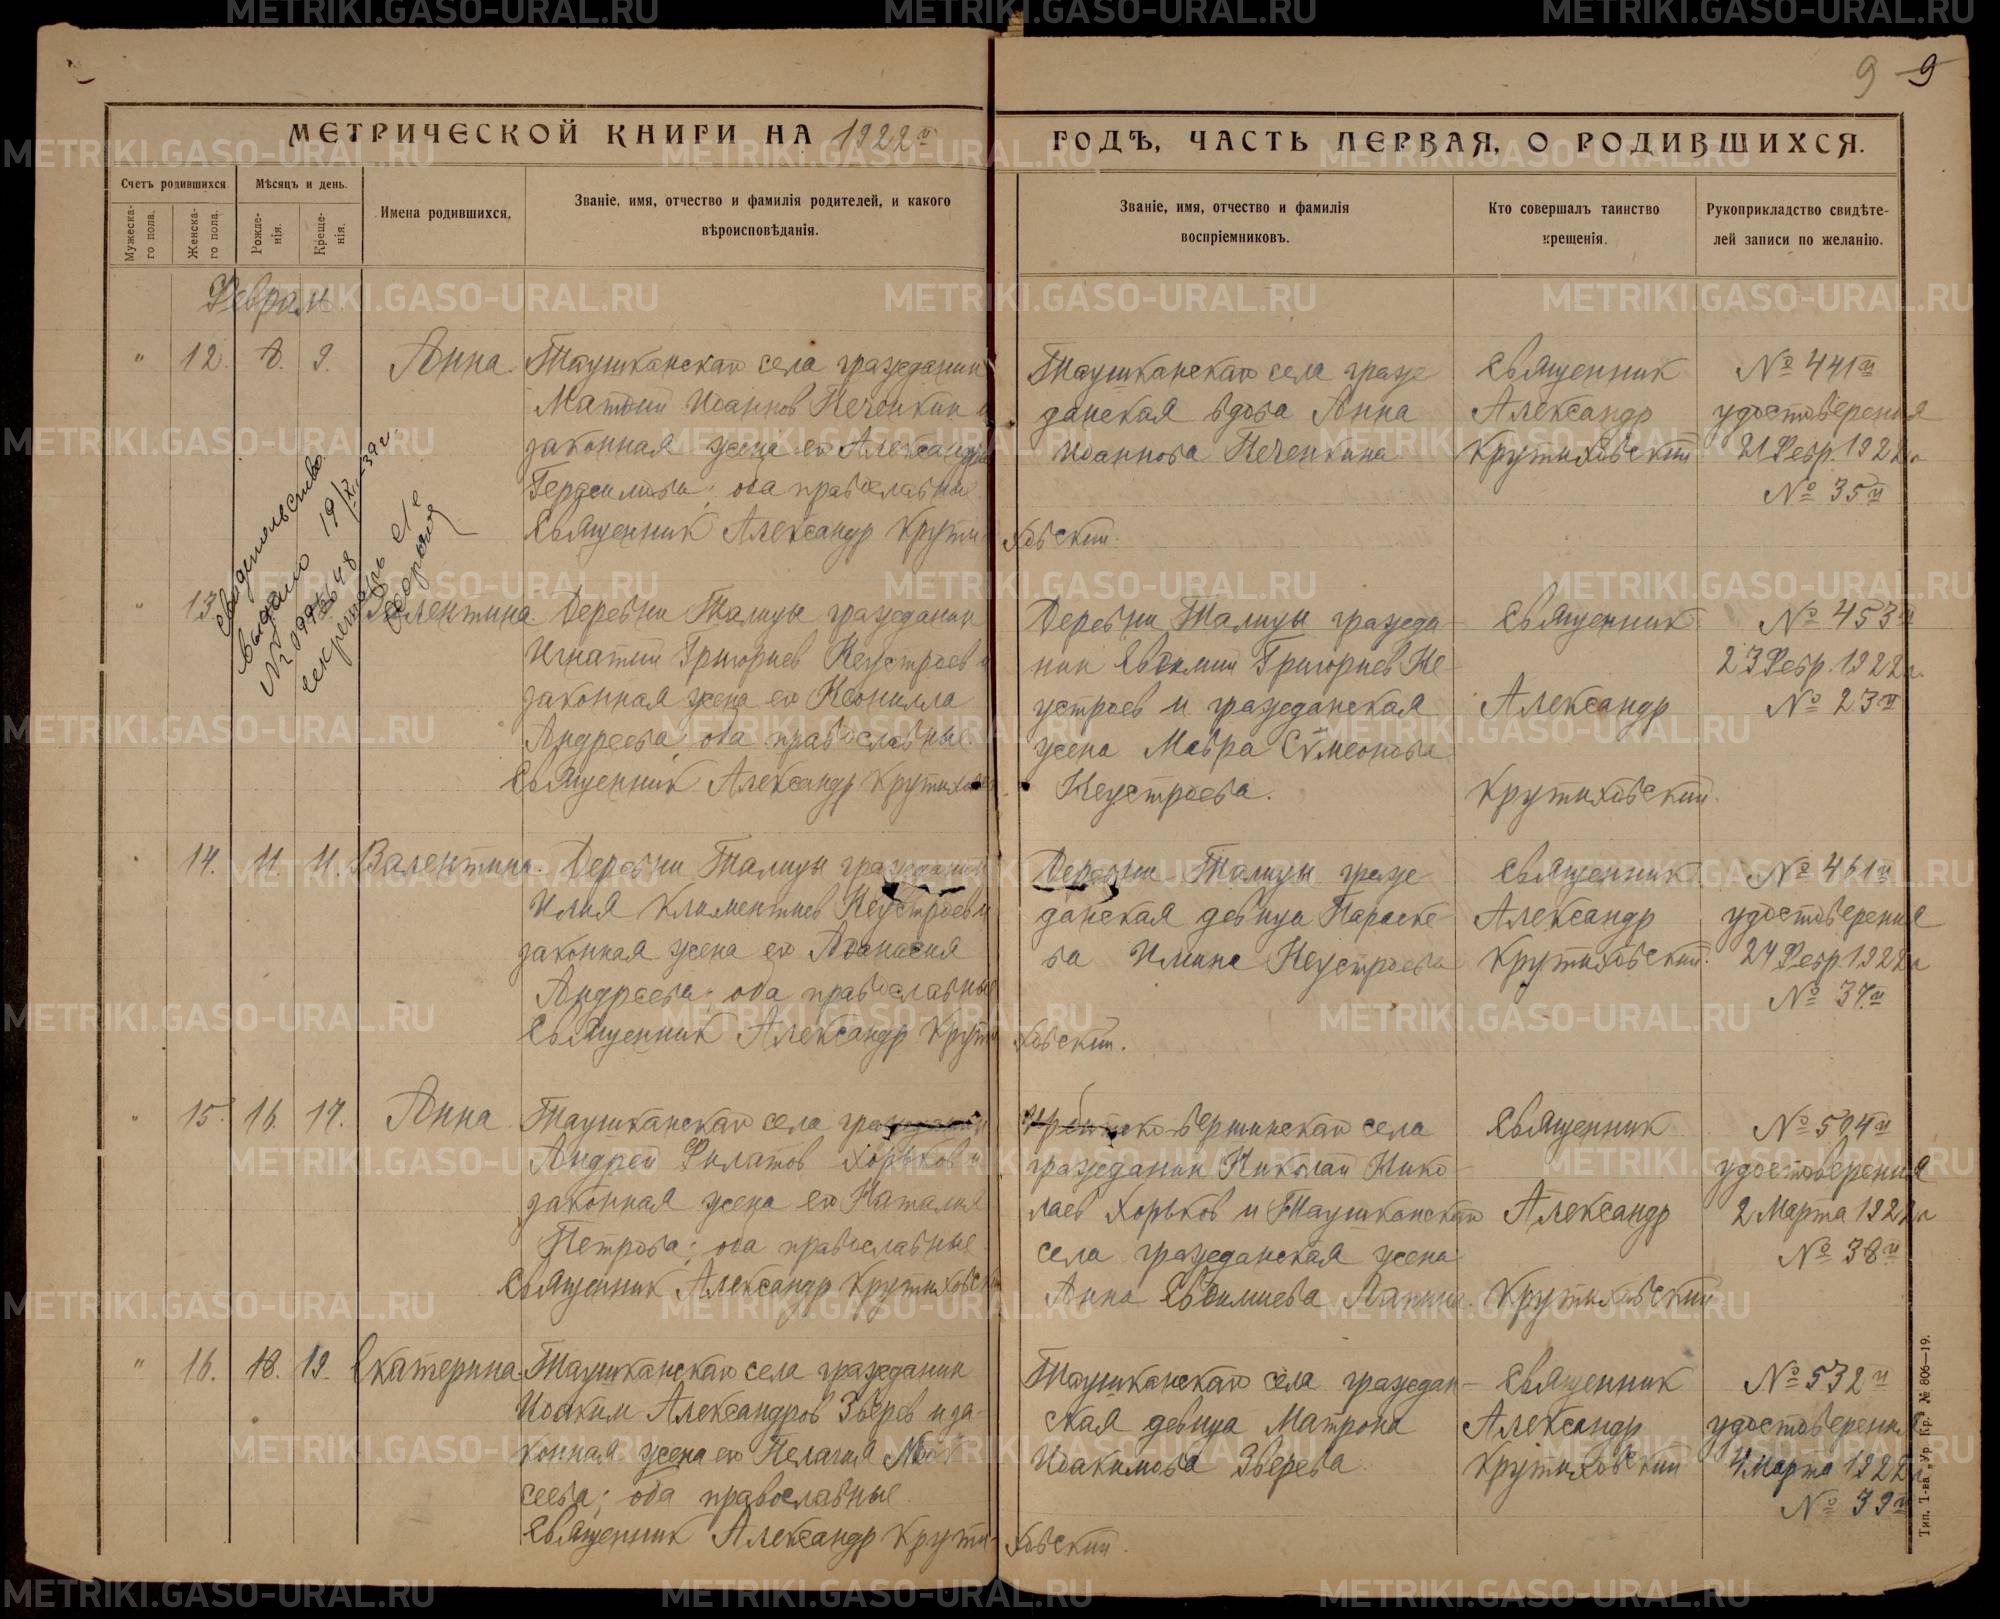 9 9
МЕТРИЧЕСКОЙ КНИГИ НА 1922й ГОДЪ, ЧАСТЬ ПЕРВАЯ, О РОДИВШИХСЯ.
Счетъ родившихся.
Мѣсяцъ и день.
Мужеска-го пола.
Женска-го пола.
Рожде-нія.
Креще-нія.
Имена родившихся.
Званіе, имя, отчество и фамилія родителей, и какого
вѣроисповѣданія.
Званіе, имя, отчество и фамилія
воспріемниковъ.
Кто совершалъ таинство
крещенія.
Рукоприкладство свидѣте-
лей записи по желанію.
" 12. 8. 9. Анна.
Таушканскаго села гражданин
Матѳий Иоаннов Печенкин и
законная жена его Александра
оба православные.
Священник Александр Крутиховский.
Таушканскаго села граж
данская вдова Анна
Иоаннова Печенкина.
Священник
Александр
Крутиховский
№ 441й
удостоверения
21 Февр. 1922 г.
№ 35й
свидетельство
выдано
секретарь
" 13
Деревни Талицы гражданин
Игнатий Григориев Неустроев и
законная жена его Неонилла
Андреева, оба православные.
Священник Александр Крутиховс
Деревни Талицы гражда
нин Евѳимий Григориев Не-
устроев и гражданская
жена Мавра Сѵмеонова
Неустроева.
Священник
Александр
Крутиховский.
№ 453й
23 Февр. 1922 г.
№ 23й
14. 11. 11. Валентина.
Деревни Талицы гражданин
Илия Климентиев Неустроев и
законная жена его Аѳанасия
Андреева; оба православные
Священник Александр Крутиховский.
Деревни Талицы граж
данская девица Параске
ва Илиина Неустроева
Священник
Александр
Крутиховский.
№ 461й
удостоверения
24 Февр. 1922 г.
№ 37й
" 15. 16. 17. Анна
Таушканскаго села гражданин
Андрей Филатов Хорьков и
законная жена его Наталия
Петрова; оба православные.
Священник Александр Крутиховск
вершинскаго села
гражданин Николай Нико-
лаев Хорьков и Таушканскаго
села гражданская жена
Анна Евѳимиева Лапина.
Священник
Александр
Крутиховский
№ 504й
удостоверения
2 Марта 1922 г.
№ 38й
" 16. 18. 19. Екатерина.
Таушканскаго села гражданин
Иоаким Александров Зверев и за-
конная жена его Пелагия Мои
сеева; оба православные.
Священник Александр Крути-ховский.
Таушканскаго села граждан-
ская девица Матрона
Иоакимова Зверева.
Священник
Александр
Крутиховский
№ 532й
удостоверения
4 Марта 1922 г.
№ 39й
Тип. Т-ва „Ур. Кр." № 806—19.
METRIKI.GASO-URAL.RU